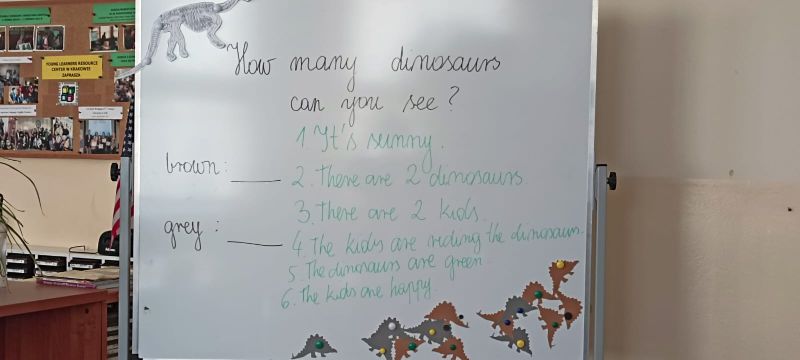 How many dinosaurs
can you see?
1. It's sunny.
brown: ____ 2. There are 2 dinosaurs.
3. There are 2 kids.
grey: ____
4. The kids are riding the dinosaurs.
5. The dinosaurs are green.
6. The kids are happy.
YOUNG LEARNERS RESOURCE
CENTER W KRAKOWIE
ZAPRASZA